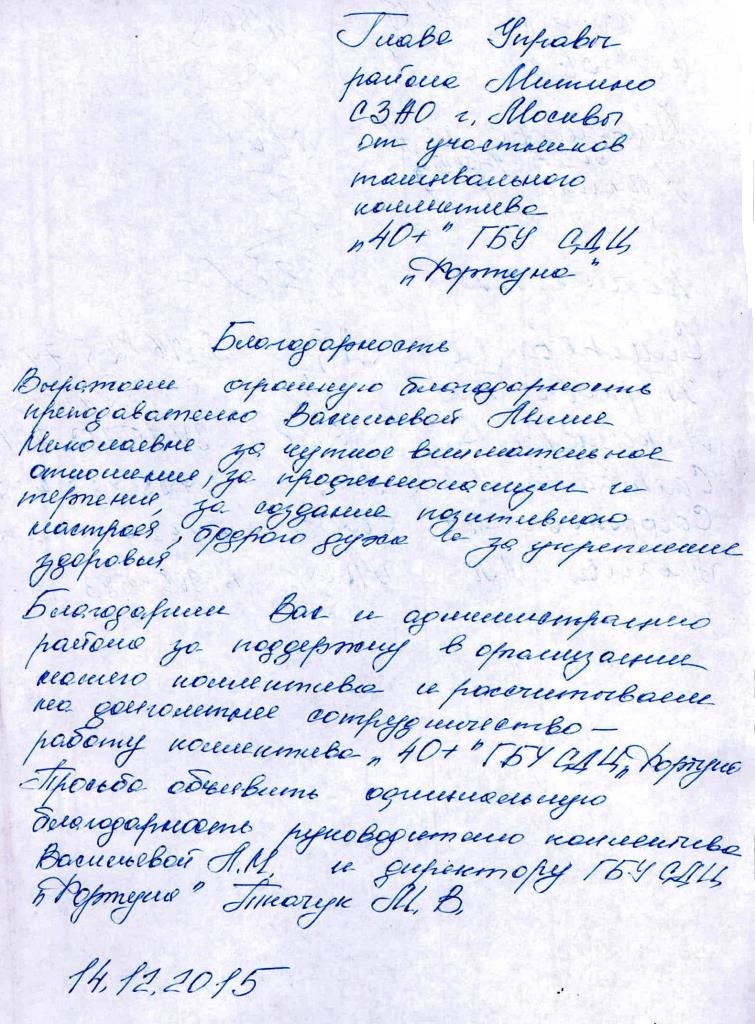 Главе Управы
района Митино
СЗАО г. Москвы
от участников
танцевального
коллектива
„40+" ГБУ СДЦ
„Фортуна"
Благодарность
Выражаем огромную благодарность
преподавателю Васильевой
Николаевне за чуткое внимательное
отношение, за профессионализм и
терпение, за создание позитивного
настроя, бодрого духа и за укрепление
здоровья.
Благодарим Вас и администрацию
района за поддержку в организации
нашего коллектива и рассчитываем
на долголетнее сотрудничество –
работу коллектива „40+" ГБУ СДЦ „Фортуна
Просьба объявить официальную
благодарность руководителю коллектива
Васильевой и директору ГБУ СДЦ
„Фортуна" Ткачук М. В.
14.12.2015